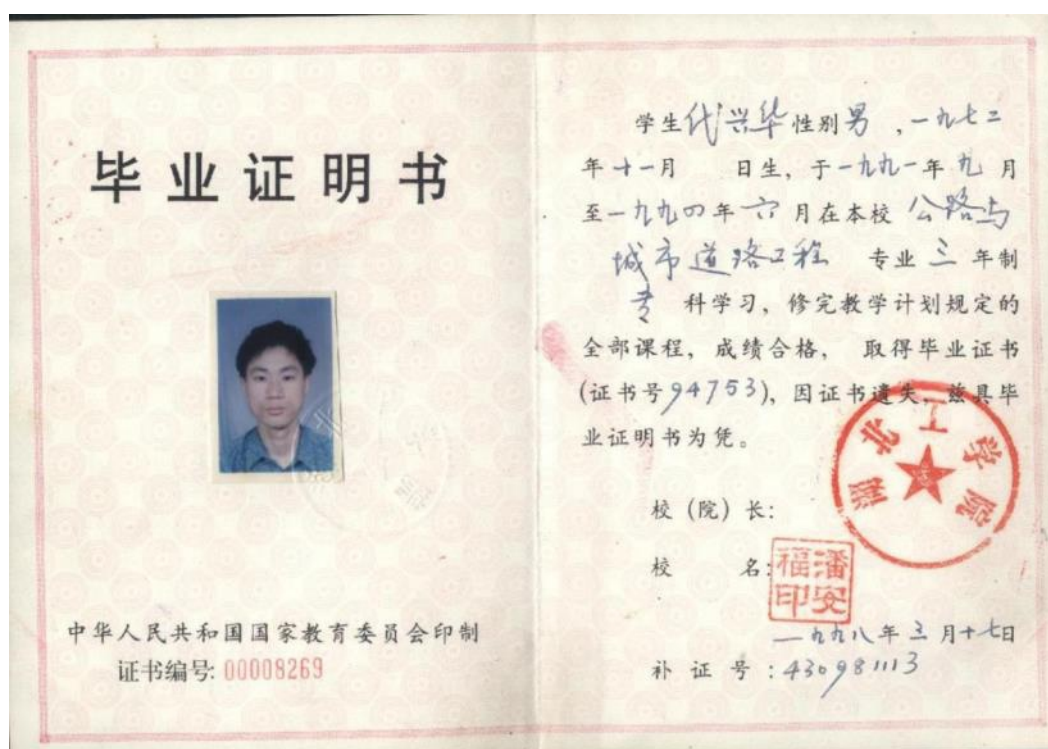 毕业证明书
中华人民共和国国家教育委员会印制
证书编号: 00008269
学生代兴华性别男,一九七二
年十一月 日生,于一九九一年九月
至一九九四年六月在本校公路与
城市道路工程 专业三年制
专 科学习,修完教学计划规定的
全部课程,成绩合格, 取得毕业证书
(证书号94753),因证书遗失,兹具毕
业证明书为凭。
湖北工学院
校(院)长:
校 名:
潘安
福印
一九九八年三月十七日
补证号:430981113